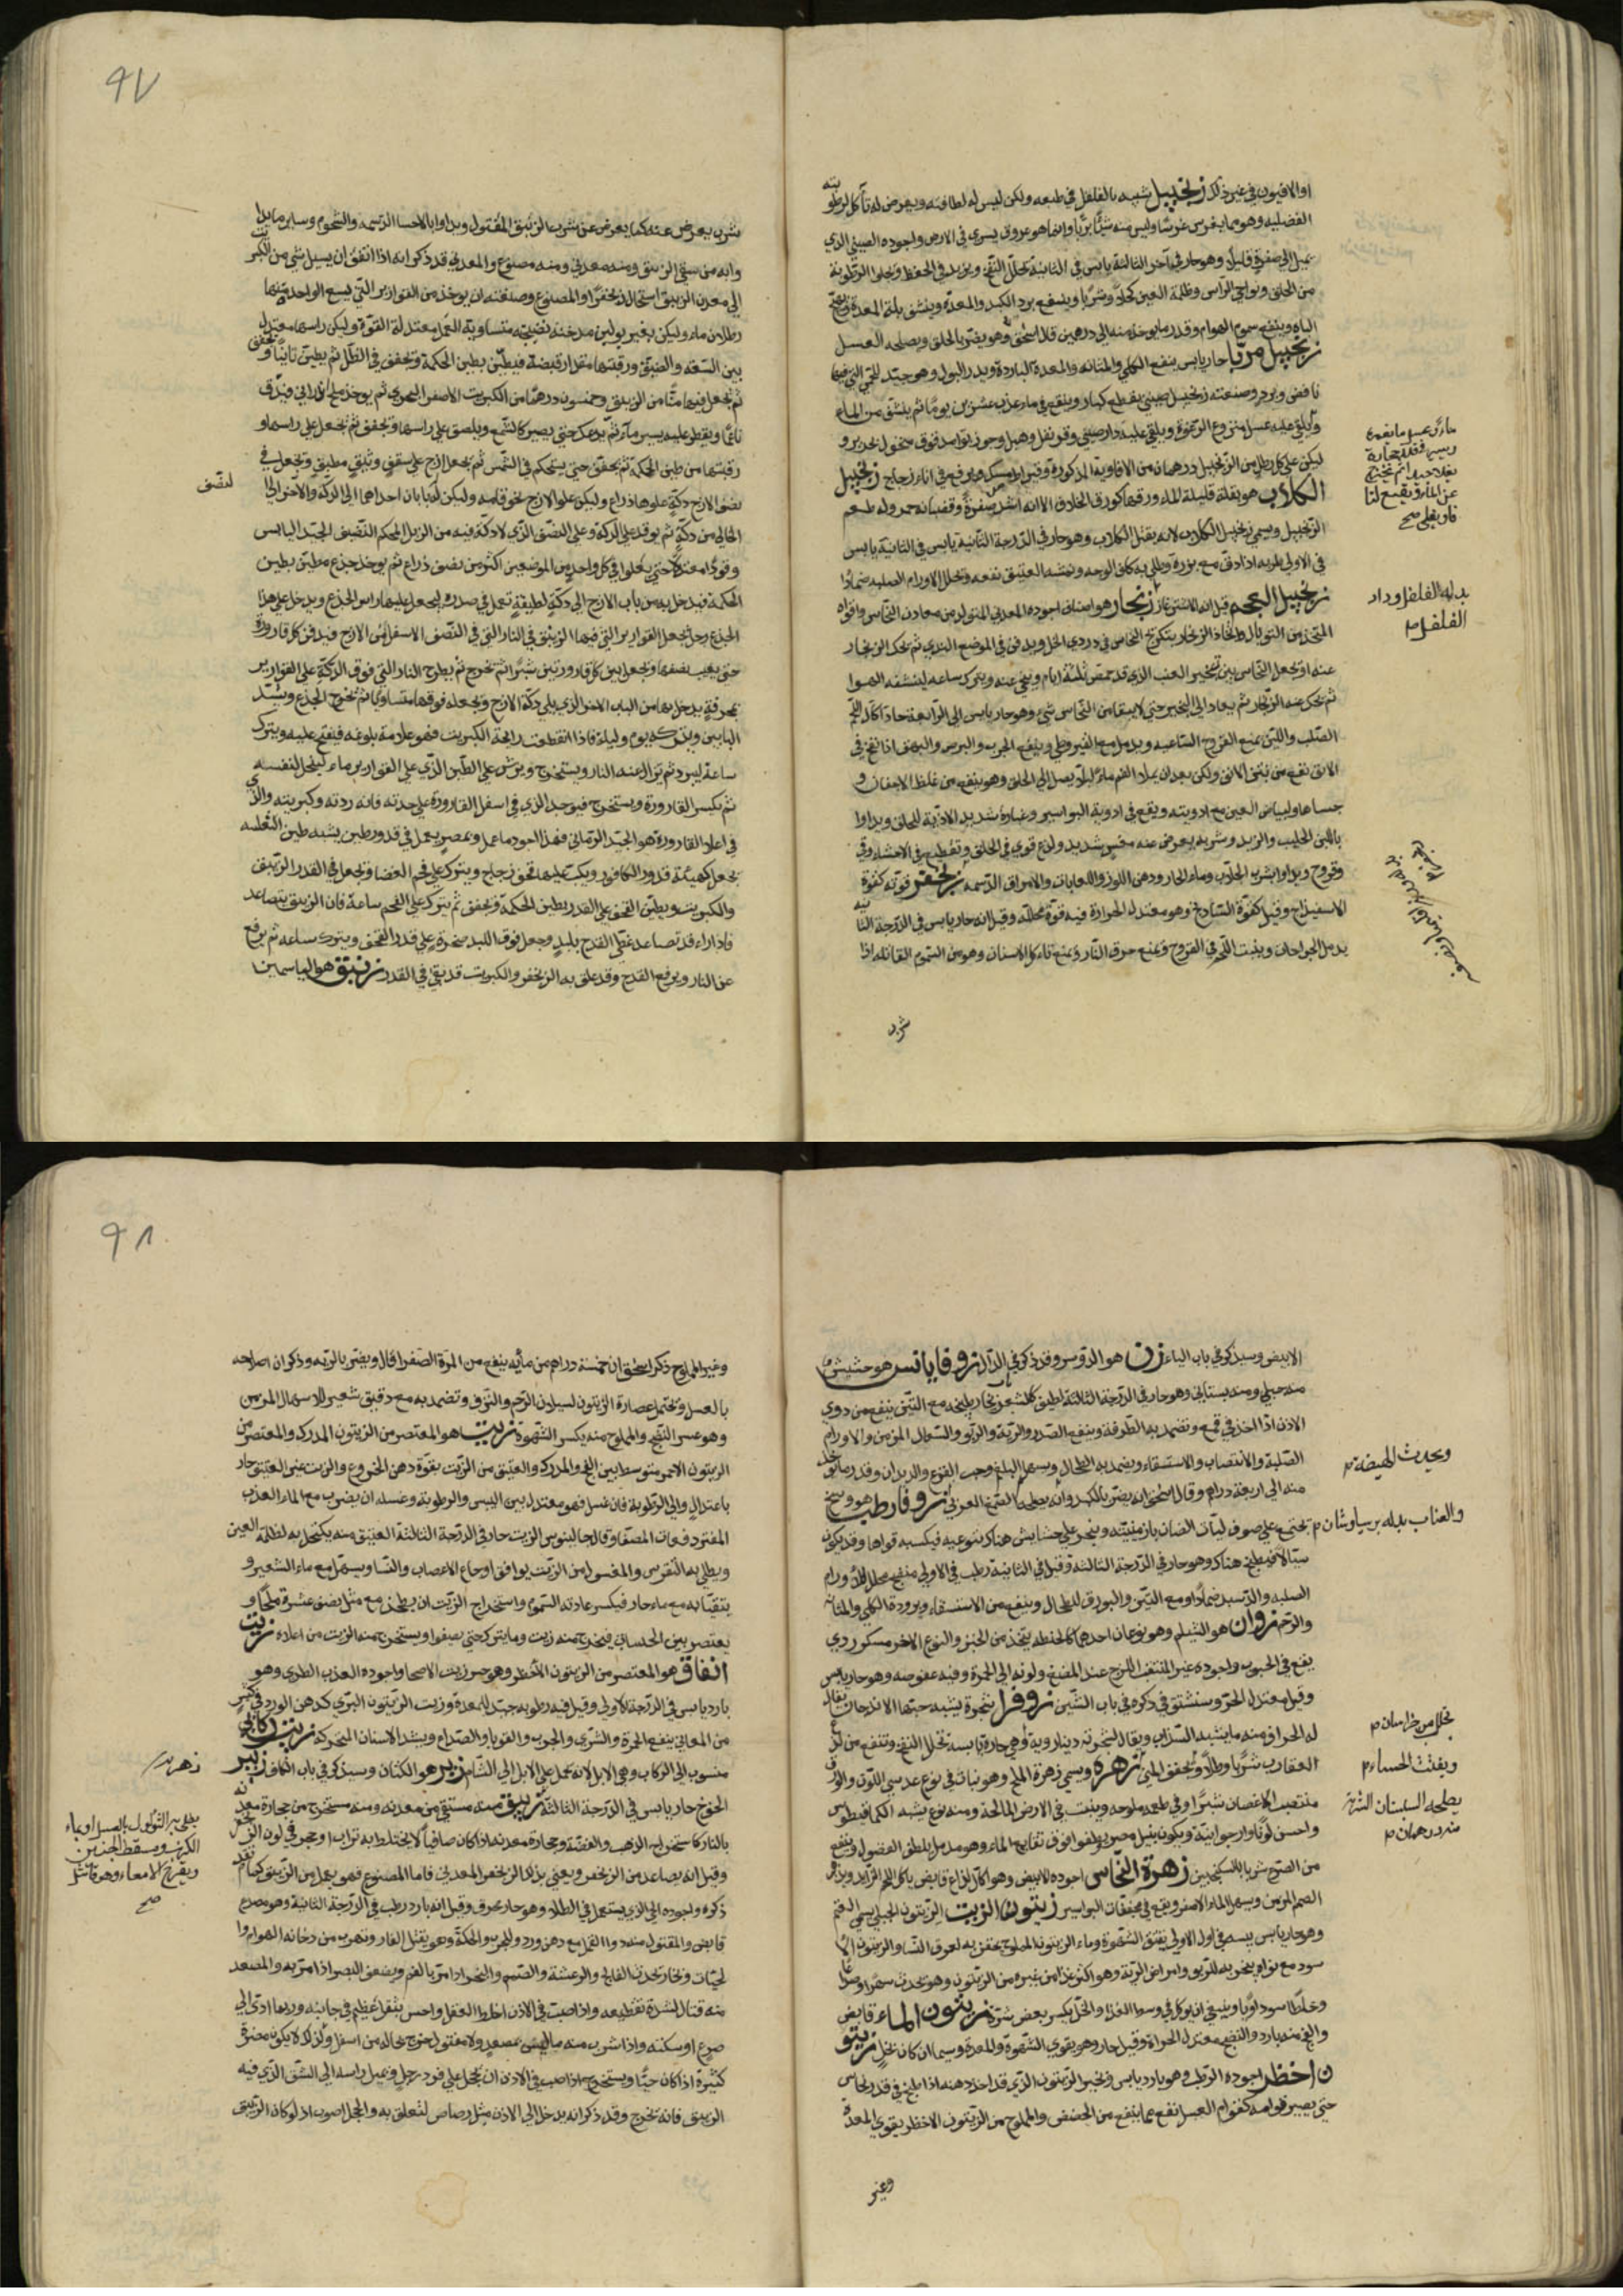 او الافيون في غير ذلك زنجبيل شبيه بالفلفل في طبعه ولكن ليس له لطافته ويعرض له تآكل لرطوبته
الفضلية وهو مما يغرس غرسًا وليس منه شيئًا بريًا وانما هو عروق يسري في الارض واجوده الصيني الذي
يميل الى صفرة قليلًا وهو حار في آخر الثالثة يابس في الثانية يحلل النفخ ويزيد في الحفظ ويجلوا الرطوبة
من الحلق ونواحي الراس وظلمة العين كحلًا وشربًا وينفع برد الكبد والمعدة وينشف بلة المعدة ويهيج
الباه وينفع سموم الهوام وقدر ما يوخذ منه الى درهمين قال اسحق وهو يضر بالحلق ويصلحه العسل
زنجبيل مربا حار يابس ينفع الكلى والمثانة والمعدة الباردة ويدر البول وهو جيد للحمى التي فيها
نافض وبرد وصنعته زنجبيل صيني يقطع كبار وينقع في ماء عذب عشرين يومًا ثم ينشف من الماء
ويلقى عليه عسل منزوع الرغوة ويلقى عليه دارصيني وقرنفل وهيل وجوزبوا مدقوق منخول بحرير و
ليكن على كل رطل من الزنجبيل درهمان من الافاوية المذكورة ويرفع في اناء زجاج زنجبيل
الكلاب هو بقلة قليلة الماء ورقها كورق الخلاف الا انه اشد صفرة وقضبانه حمر وله طعم
الزنجبيل ويسمى زنجبيل الكلاب لانه يقتل الكلاب وهو حار في الدرجة الثانية يابس في الثانية يابس
في الاولى طريه اذا دق مع بزره وطلي به كلف الوجه ونمشه العتيق نفعه ويحلل الاورام الصلبة ضمادًا
زنجبيل العجم قيل انه الاشترغاز زنجار هو اصناف اجوده المعدني المتولد من معادن النحاس واقواه
المتخذ من التوبال واتخاذ الزنجار بتكريج النحاس في دردي الخل ويدفن في الموضع الندي ثم يحك الزنجار
عنه او يجعل النحاس بين ثجير العنب الذي قد حمض ثلثة ايام وينحى عنه ويترك ساعة لينشفه الهوا
ثم يحك عنه الزنجار ثم يعاد الى الثجير حتى لا يبقا من النحاس شيء وهو حار يابس الى الرابعة حاد آكال للحم
الصلب واللين يمنع القروح الساعية ويدمل مع القيروطي وينفع الجرب والبرص والبهق اذا نفخ في
الانف نفع من نتن الانف ولكن بعد ان يملا الفم ماء لئلا يصل الى الحلق وهو ينفع من غلظ الاجفان و
جساها ولبياض العين مع ادويته ويقع في ادوية البواسير وغباره شديد الاذية للحلق ويداوا
باللبن الحليب والزبد وشربه يعرض عنه مغس شديد ولذع قوي في الحلق وتقطيع في الاحشاء وقي
وقروح ويداوا بشرب الجلاب وماء الحار ودهن اللوز واللعابات والامراق الدسمة زنجفر قوته كقوة
الاسفيداج وقيل كقوة الشادنج وهو معتدل الحرارة فيه قوة محللة وقيل انه حار يابس في الدرجة الثانية
يدمل الجراحات وينبت اللحم في القروح ويمنع حرق النار ويمنع تاكل الاسنان وهو من السموم القاتلة اذا
شرب
بدله الفلفل ودار
الفلفل م
٩٧
شرب يعرض عنه كما يعرض عن شرب الزيبق المقتول ويداوا بالاحسا الدسمة والشحوم وساير ما يداوا
وابه من سقي الزيبق ومنه معدني ومنه مصنوع والمعدني قد ذكر انه اذا اتفق ان يسيل شي من الكبريت
الى معدن الزيبق استحال زنجفرًا والمصنوع وصنعته ان يوخذ من القوارير التي يسع الواحدة منها
رطلان ماء وليكن بغير بولين مدخنة نضيجة متساوية العمل معتدلة القوة وليكن راسها معتدل
بين السعة والضيق ورقبتها مقدار قبضة فيطين بطين الحكمة ويجفف في الظل ثم يطين ثانيًا ويجفف
ثم يجعل فيها منًا من الزيبق وخمسون درهمًا من الكبريت الاصفر البحري ثم يوخذ ملح اندراني فيدق
ناعمًا ويقطر عليه يسير ماء ثم يدعك حتى يصير كالشمع ويلصق على راسها ويجفف ثم يجعل على راسها و
رقبتها من طين الحكمة ثم يجفف حتى يستحكم في الشمس ثم يجعل ازج على سقف وثيق مطبق ويجعل في
نصف الازج دكة علوها ذراع وليكن علو الازج نحو قامة وليكن له بابان احداهما الى الدكة والاخر الى
النصف
الخالي من دكة ثم يوقد على الدكة وعلى النصف الذي لا دكة فيه من الزبل المحكم النصف الجيد اليابس
وقودًا معتدلًا حتى يعلوا في كل واحد من الموضعين اكثر من نصف ذراع ثم يوخذ جذع مطين بطين
الحكمة فيدخل به من باب الازج الى دكة لطيفة تعمل في صدره ليجعل عليها راس الجذع ويدخل على هذا
الجذع رجل يجعل القوارير التي فيها الزيبق في النار التي في النصف الاسفل من الازج فيدفن كل قارورة
حتى يغيب نصفها ويجعل بين كل قارورتين شبرًا ثم يخرج ثم يطرح النار التي فوق الدكة على القوارير
بمجرفة يدخل بها من الباب الاخر الذي يلي دكة الازج ويجعله فوقها متساويًا ثم يخرج الجذع ويسد
البابين ويتركه يوم وليلة فاذا انقطعت رايحة الكبريت فهو علامة بلوغه فيفتح عليه ويترك
ساعة ليبرد ثم يزال عنه النار ويستخرج ويرش على الطين الذي على القوارير ماء لينحل لنفسه
ثم يكسر القارورة ويستخرج فيوجد الذي في اسفل القارورة على حدته فانه رديه وكبريته والذي
في اعلا القارورة هو الجيد الرماني فهذا اجود ما عمل وبمصر يعمل في قدور طين يشبه طين
يجعل كهيئة قدور الكافور ويكب عليها قحف زجاج ويترك على فحم الغضا ويجعل في القدر الزيبق
والكبريت ويطين القحف على القدر بطين الحكمة ويجفف ثم يترك على الفحم ساعة فان الزيبق يتصاعد
فاذا راه قد تصاعد غطى القدح بلبد وجعل فوق اللبد صخرة على قدر القحف ويترك ساعة ثم يرفع
عن النار ويرفع القدح وقد علق به الزنجفر والكبريت قد بقي في القدر زنبق هو الياسمين
الابيض وسيذكر في باب الياء زن هو الدوسر وقد ذكر في الدال زوفا يابس هو حشيش
منه جبلي ومنه بستاني وهو حار في الدرجة الثالثة لطيف كالسعتر بخار طبيخه مع التين ينفع من دوي
الاذن اذا اخذ في قمع وتضمد به الطرفة وينفع الصدر والرية والربو والسعال المزمن والاورام
الصلبة والانتصاب والاستسقاء ويضمد به الطحال ويسهل البلغم وحب القرع والديدان وقدر ما يوخذ
منه الى اربعة دراهم وقال اسحق انه يضر بالكبد وانه يصلحه الصمغ العربي زوفا رطب هو وسخ
يجتمع على صوف ليات الضان بارمينية وينجر على حشايش هناك يتوعية فيكسبه قواها وقد يكون
سيالًا فيطبخ هناك وهو حار في الدرجة الثالثة وقيل في الثانية رطب في الاولى منضج محلل للاورام
الصلبة والدشبد ضمادًا ومع التين والبورق للطحال وينفع من الاستسقاء وبرودة الكلى والمثانة
والرحم زوان هو الشيلم وهو نوعان احدهما كالحنطة يتخذ من الخبز والنوع الاخر مسكر ردي
يقع في الحبوب واجوده غير المتفتت اللزج عند المضغ ولونه الى الحمرة وفيه عفوصة وهو حار يابس
وقيل معتدل الحر وسنشتق في ذكره في باب الشين زوفرا شجرة يشبه حبها الانجدان يقال
له الحزا ومنه ما يشبه السذاب ويقال لشجرته دينارويه وهي حارة يابسة تحلل النفخ وتنفع من لذع
العقارب شربًا وطلاءً وتجفف المني زهرة ويسمى زهرة الملح وهو نبات في نوع عدسي اللون والورق
منتصب الاغصان شبرًا وفي طعمه ملوحة وينبت في الارض المالحة ومنه نوع يشبه الكمافيطوس
واحسن لونًا وارجوانية ويكون بنيل مصر يطفوا فوق نقايع الماء وهو مدمل يلطف الفضول وينفع
من الصرع شربا بالسكنجبين زهرة النحاس اجوده الابيض وهو اكال لذاع قابض ياكل اللحم الزايد ويذهب
الصمم المزمن ويسهل الماء الاصفر ويقع في مجففات البواسير زيتون الزيت الزيتون الجبلي يسمى
وهو حار يابس يبسه في اول الاولى يفتق الشهوة وماء الزيتون المملوح يحقن به لعرق النسا والزيتون الا
سود مع نواه يتبخر به للربو وامراض الرية وهو اكثر غذا من غيره من الزيتون وهو يحدث سهرًا وصداعًا
وخلطًا سوداويًا وينبغي ان يوكل في وسط الغذا والخل يكسر بعض شره زيتون الماء قابض
والفج منه بارد والنضج معتدل الحرارة وقيل حار وهو يقوي الشهوة والمعدة وسيما ان كان بخل زيتو
ن اخظر اجوده الرطب وهو بارد يابس وثجير الزيتون الذي قد اخذ دهنه اذا طبخ في قدر نحاس
حتى يصير قوامه كقوام العسل نفع مما ينفع من الحضض والمملوح من الزيتون الاخظر يقوي المعدة
وغير
ويحدث الهيضة م
والعناب بدله برسياوشان م
تجلب من خراسان م
ويفتت الحصاة م
يصلحه السبستان الشربة
منه درهمان م
٩٨
وغير المملوح ذكر اسحق ان خمسة دراهم من مايه ينفع من المرة الصفرا قال ويضر بالرية وذكر ان اصلاحه
بالعسل وتحتمل عصارة الزيتون لسيلان الرحم والنزف وتضمد به مع دقيق شعير للاسهال المزمن
وهو عسر النضج والمملوح منه يكسر الشهوة زيت هو المعتصر من الزيتون المدرك والمعتصر من
الزيتون الاحمر متوسط بين الفج والمدرك والعتيق من الزيت بقوة دهن الخروع والزيت غير العتيق حار
باعتدال والى الرطوبة فان غسل فهو معتدل بين اليبس والرطوبة وغسله ان يضرب مع الماء العذب
المفتر دفعات المصفا وقال جالينوس الزيت حار في الدرجة الثالثة العتيق منه يكتحل به لظلمة العين
ويطلى به النقرس والمغسول من الزيت يوافق اوجاع الاعصاب والنسا ويسهل مع ماء الشعير و
يتقيا به مع ماء حار فيكسر عادية السموم واستخراج الزيت ان يطحن مع مثل نصف عشره ملحًا و
يعتصر بين فيخرج منه زيت وما يترك حتى يصفوا ويستخرج منه الزيت من اعلاه زيت
انفاق هو المعتصر من الزيتون الاخظر وهو خير زيت الاصحا واجوده العذب الطري وهو
بارد يابس في الدرجة الاولى وقيل فيه رطوبة جيد للمعدة وزيت الزيتون البري كدهن الورد في كثير
من المعاني ينفع الحمرة والشرى والجرب والقوبا والصداع ويشد الاسنان المتحركة زيت ركابي
منسوب الى الركاب وهي الابل لانه يحمل على الابل الى الشام زير هو الكتان وسيذكر في باب الكاف زئير
الخوخ حار يابس في الدرجة الثالثة زيبق منه مستقى من معدنه ومنه مستخرج من حجارة معدنه
بالنار كاستخراج الذهب والفضة وحجارة معدنه اذا كان صافيًا لا يختلط به ترابا وحجر في لون الزنجفر
وقيل انه يصاعد من الزنجفر ويعني بذلك الزنجفر المعدني فاما المصنوع فهو يعمل من الزيبق كما تقدم
ذكره واجوده الحي الذي يستعمل في الطلاء وهو حار محرق وقيل انه بارد رطب في الدرجة الثانية وهو مصدع
قابض والمقتول منه دوا القمل مع دهن ورد وللجرب والحكة وهو يقتل الفار وتهرب من دخانه الهوام وا
لحيات وبخاره يحدث الفالج والرعشة والصمم والبخر اذا مر بالفم ويضعف البصر اذا مر به والمصعد
منه قتال لشدة تقطيعه واذا صب في الاذن اخلط العقل واحس بثقل عظيم في جانبه وربما ادى الى
صرع او سكتة واذا شرب منه ما ليس بمصعد ولا مقتول خرج بحاله من اسفل ولذلك لا يكون مضرة
كثيرة اذا كان حيًا ويستخرج اذا صب في الاذن ان يحجل على فرد رجل ويميل راسه الى الشق الذي فيه
الزيبق فانه يخرج وقد ذكر انه يدخل الى الاذن ميل رصاص لتعلق به والحجل اصوب اذ لو كان الزيبق
زهر
يطلى به الثواليل بالعسل او بماء
الكرنب ويسقط الجنين
ويقرح الامعاء وهو قاتل
صح